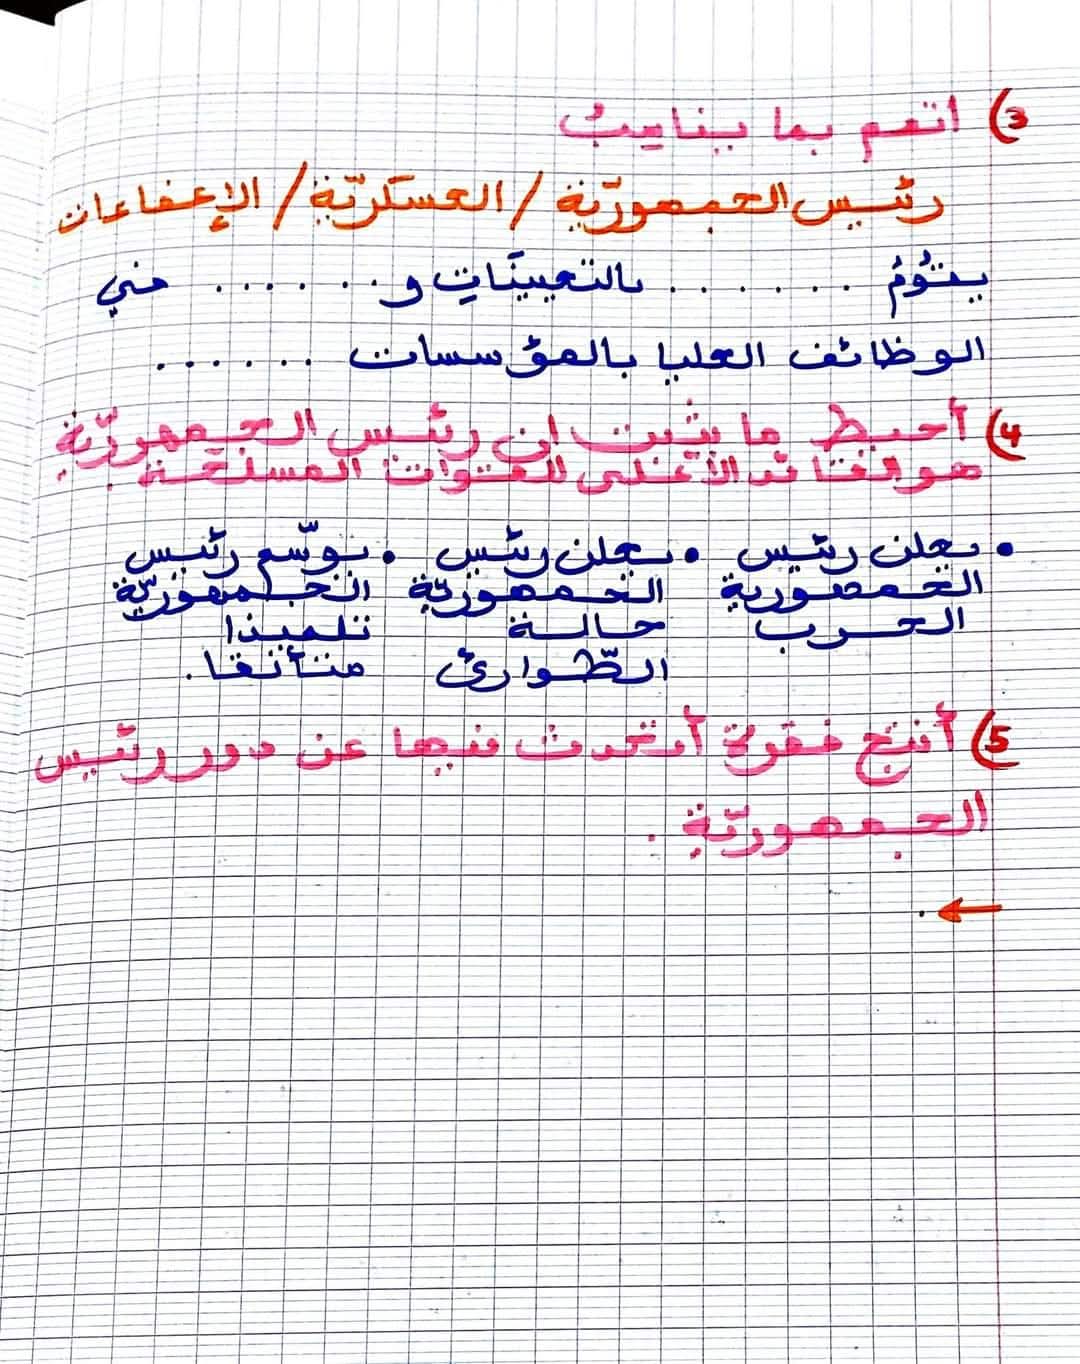 3) أتمم بما يناسب
رئيس الجمهوريّة / العسكريّة / الإعفاءات
يقومُ ...... بالتعييناتِ و...... في
الوظائف العليا بالمؤسسات ......
4) أحيط ما يثبت ان رئيس الجمهوريّة
هو القائد الأعلى للقوات المسلّحة.
• يعلن رئيس الجمهورية الحرب
• يعلن رئيس الجمهوريّة حالة الطّوارئ
• يوسّم رئيس الجمهوريّة تلميذا متألقا.
5) أنتج فقرة أتحدث فيها عن دور رئيس
الجمهوريّة.
←.